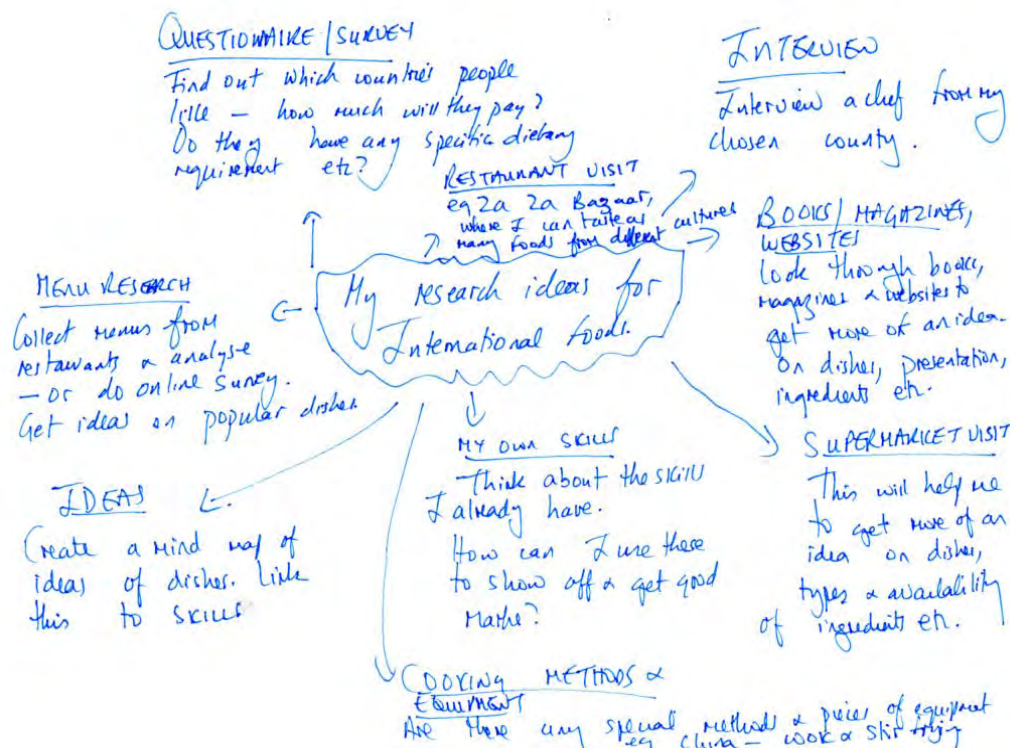 QUESTIONAIRE/SURVEY
Find out which countries people
like – how much will they pay?
Do they have any specific dietary
requirement etc?
INTERVIEW
Interview a chef from my
chosen county.
RESTAURANT VISIT
eg Za Za Bazaar,
where I can taste as
many foods from different cultures
BOOKS/MAGAZINES,
WEBSITES
look through books,
magazines & websites to
get more of an idea.
on dishes, presentation,
ingredients etc.
My research ideas for
International foods.
MENU RESEARCH
Collect menus from
restaurants & analyse
– or do online survey.
Get ideas on popular dishes.
IDEAS
Create a mind map of
ideas of dishes. Link
this to SKILLS
MY OWN SKILLS
Think about the skills
I already have.
How can I use these
to show off & get good
SUPERMARKET VISIT
This will help me
to get more of an
idea on dishes,
types & availability
of ingredients etc.
COOKING METHODS &
EQUIPMENT
Are there any special methods & pieces of equipment
eg China – wok & stir frying